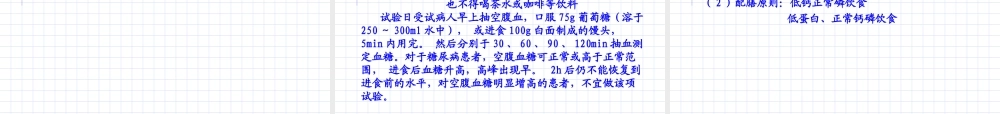 也不得喝茶水或咖啡等饮料
试验日受试病人早上抽空腹血，口服 75g 葡萄糖（溶于
250 ~ 300ml 水中）， 或进食 100g 白面制成的馒头，
5min 内用完。 然后分别于 30 、 60 、 90 、 120min 抽血测
定血糖。对于糖尿病患者，空腹血糖可正常或高于正常范
围， 进食后血糖升高，高峰出现早。 2h 后仍不能恢复到
进食前的水平，对空腹血糖明显增高的患者，不宜做该项
试验。
（ 2 ）配膳原则：低钙正常磷饮食
低蛋白、正常钙磷饮食